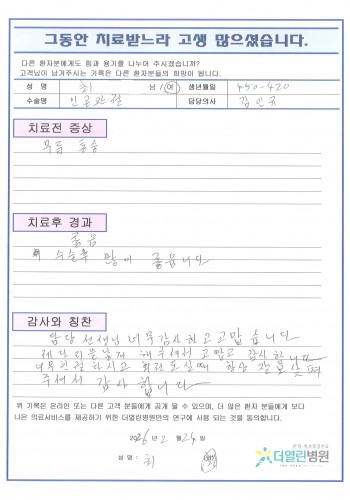 그동안 치료받느라 고생 많으셨습니다.
다른 환자분에게도 힘과 용기를 나누어 주시겠습니까?
고객님이 남겨주시는 기록은 다른 환자분들의 희망이 됩니다.
성 명 최 남 / 여 생년월일 450-420
수술명 인공관절 담당의사 김민규
치료전 증상
무릎 통증
치료후 경과
좋음
수술후 많이 좋습니다
감사와 칭찬
담당 선생님 너무 감사하고 고맙습니다
제 다리를 낳게 해주셔서 고맙고 감사합니다
너무 친절하시고 회진 도실때 항상 잘 보살펴
주셔서 감사합니다
위 기록은 온라인 또는 다른 고객 분들에게 공개 될 수 있으며, 더 많은 환자 분들에게 보다
나은 의료서비스를 제공하기 위한 더열린병원만의 연구에 사용 되는 것을 동의합니다.
2026년 2월 24일
성 명 : 최
더열린병원